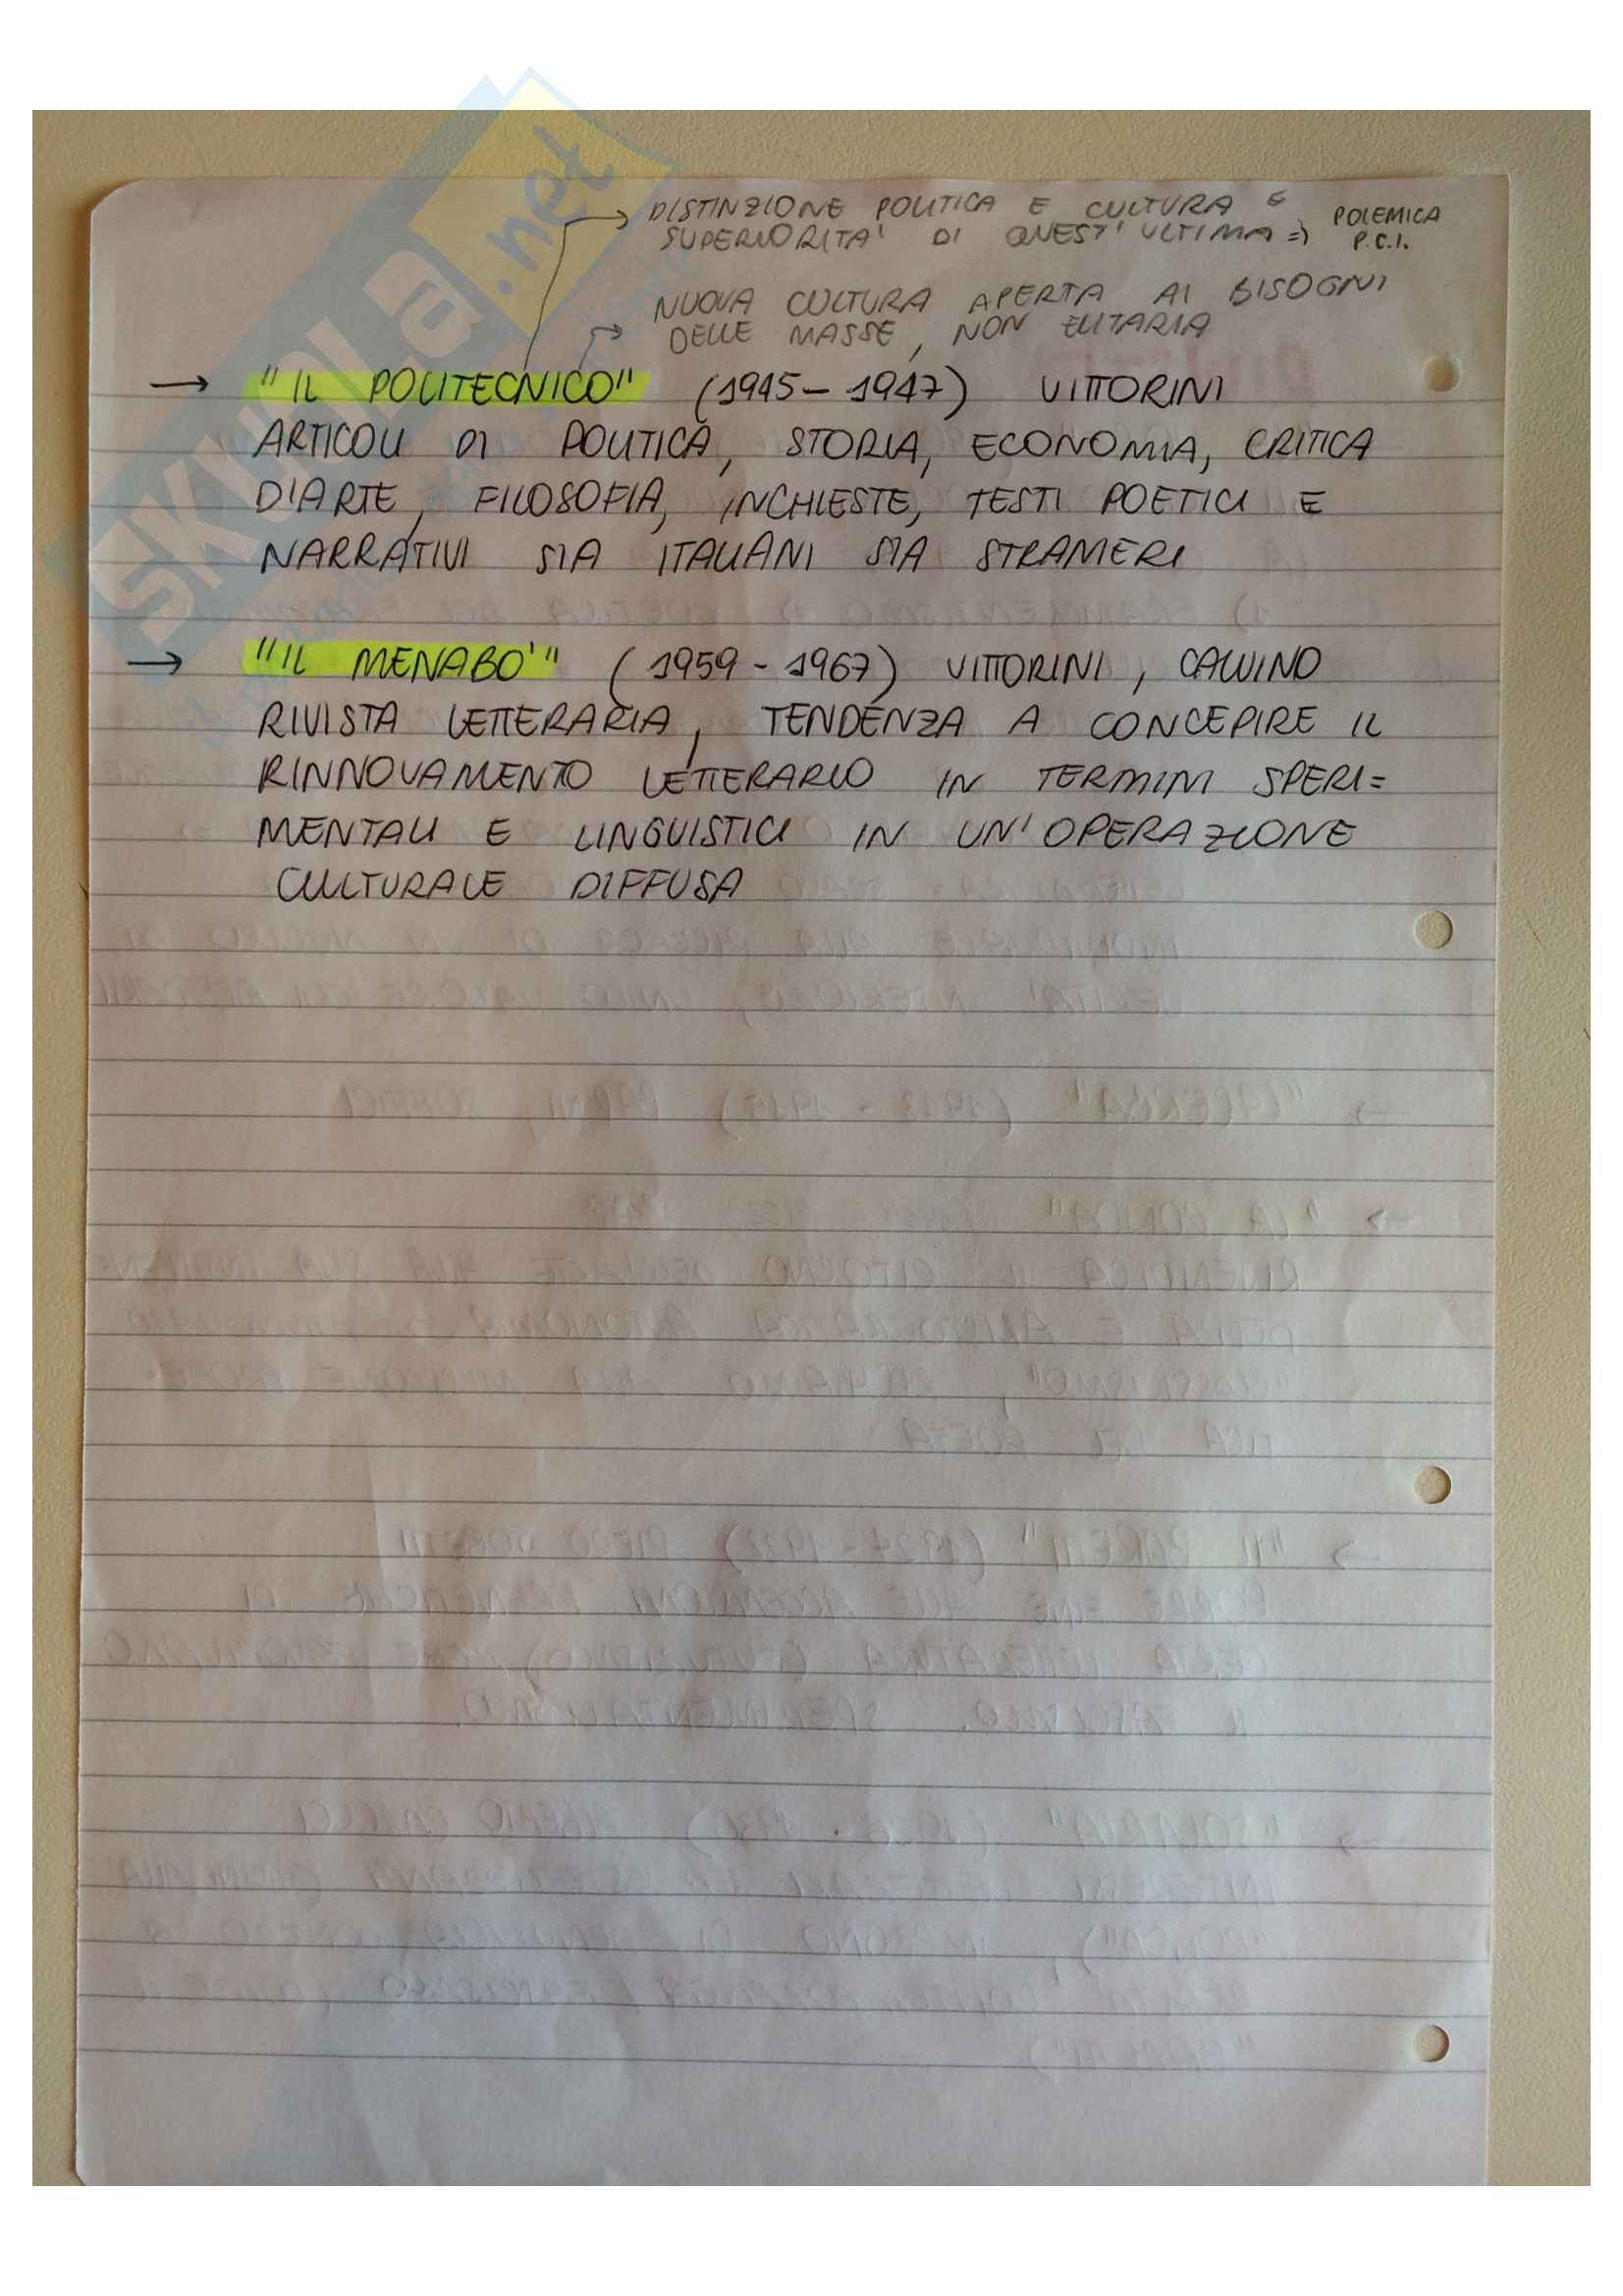 DISTINZIONE POLITICA E CULTURA E
SUPERIORITA' DI QUEST'ULTIMA => POLEMICA
P.C.I.
NUOVA CULTURA APERTA AI BISOGNI
DELLE MASSE, NON ELITARIA
→ "IL POLITECNICO" (1945-1947) VITTORINI
ARTICOLI DI POLITICA, STORIA, ECONOMIA, CRITICA
D'ARTE, FILOSOFIA, INCHIESTE, TESTI POETICI E
NARRATIVI SIA ITALIANI SIA STRANIERI
→ "IL MENABO'" (1959-1967) VITTORINI, CALVINO
RIVISTA LETTERARIA, TENDENZA A CONCEPIRE IL
RINNOVAMENTO LETTERARIO IN TERMINI SPERI=
MENTALI E LINGUISTICI IN UN'OPERAZIONE
CULTURALE DIFFUSA
SKUOLA.net